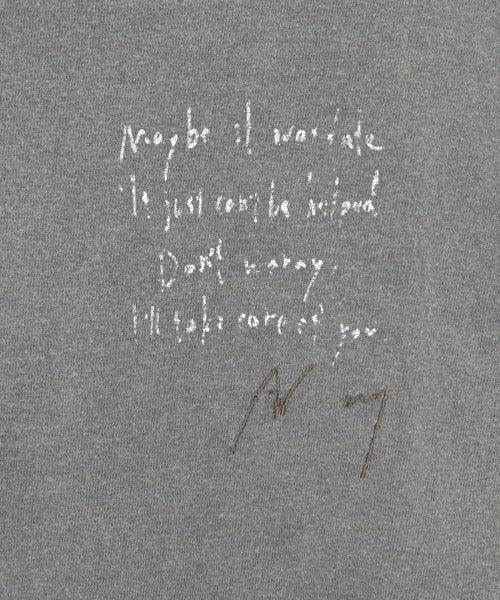 Maybe it was fate
It just can't be helped
Don't worry,
I'll take care of you.